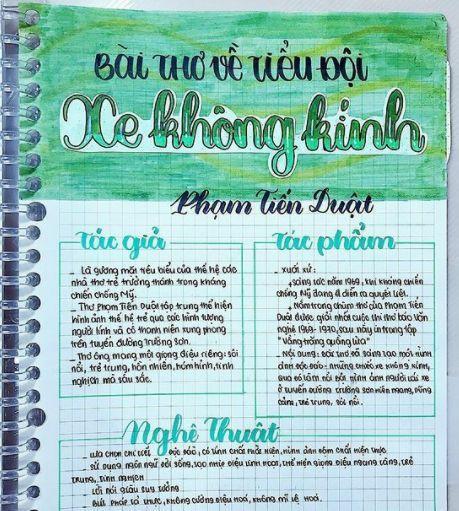 Bài thơ về tiểu đội
Xe không kính
Phạm Tiến Duật
Tác giả
_ Là gương mặt tiêu biểu của thế hệ các
nhà thơ trẻ trưởng thành trong kháng
chiến chống Mỹ.
_ Thơ Phạm Tiến Duật tập trung thể hiện
hình ảnh thế hệ trẻ qua các hình tượng
người lính và cô thanh niên xung phong
trên tuyến đường Trường Sơn.
_ Thơ ông mang một giọng điệu riêng: sôi
nổi, trẻ trung, hồn nhiên, hóm hỉnh, tinh
nghịch mà sâu sắc.
Tác phẩm
_ Xuất xứ:
+ Sáng tác năm 1969, khi kháng chiến
chống Mỹ đang diễn ra quyết liệt.
+ Nằm trong chùm thơ của Phạm Tiến
Duật được giải nhất cuộc thi thơ báo Văn
nghệ 1969-1970, sau này in trong tập
"Vầng trăng quầng lửa"
_ Nội dung: Bài thơ đã sáng tạo một hình
ảnh độc đáo: những chiếc xe không kính,
qua đó làm nổi bật hình ảnh người lái xe
ở tuyến đường Trường Sơn hiên ngang, dũng
cảm, trẻ trung, sôi nổi.
Nghệ Thuật
_ Lựa chọn chi tiết độc đáo, có tính chất phát hiện, hình ảnh đậm chất hiện thực
_ Sử dụng ngôn ngữ đời sống, tạo nhịp điệu linh hoạt, thể hiện giọng điệu ngang tàng, trẻ
trung, tinh nghịch
_ Lối nói giàu suy tưởng
_ Bút pháp tả thực, không cường điệu hoá, không mĩ lệ hoá.